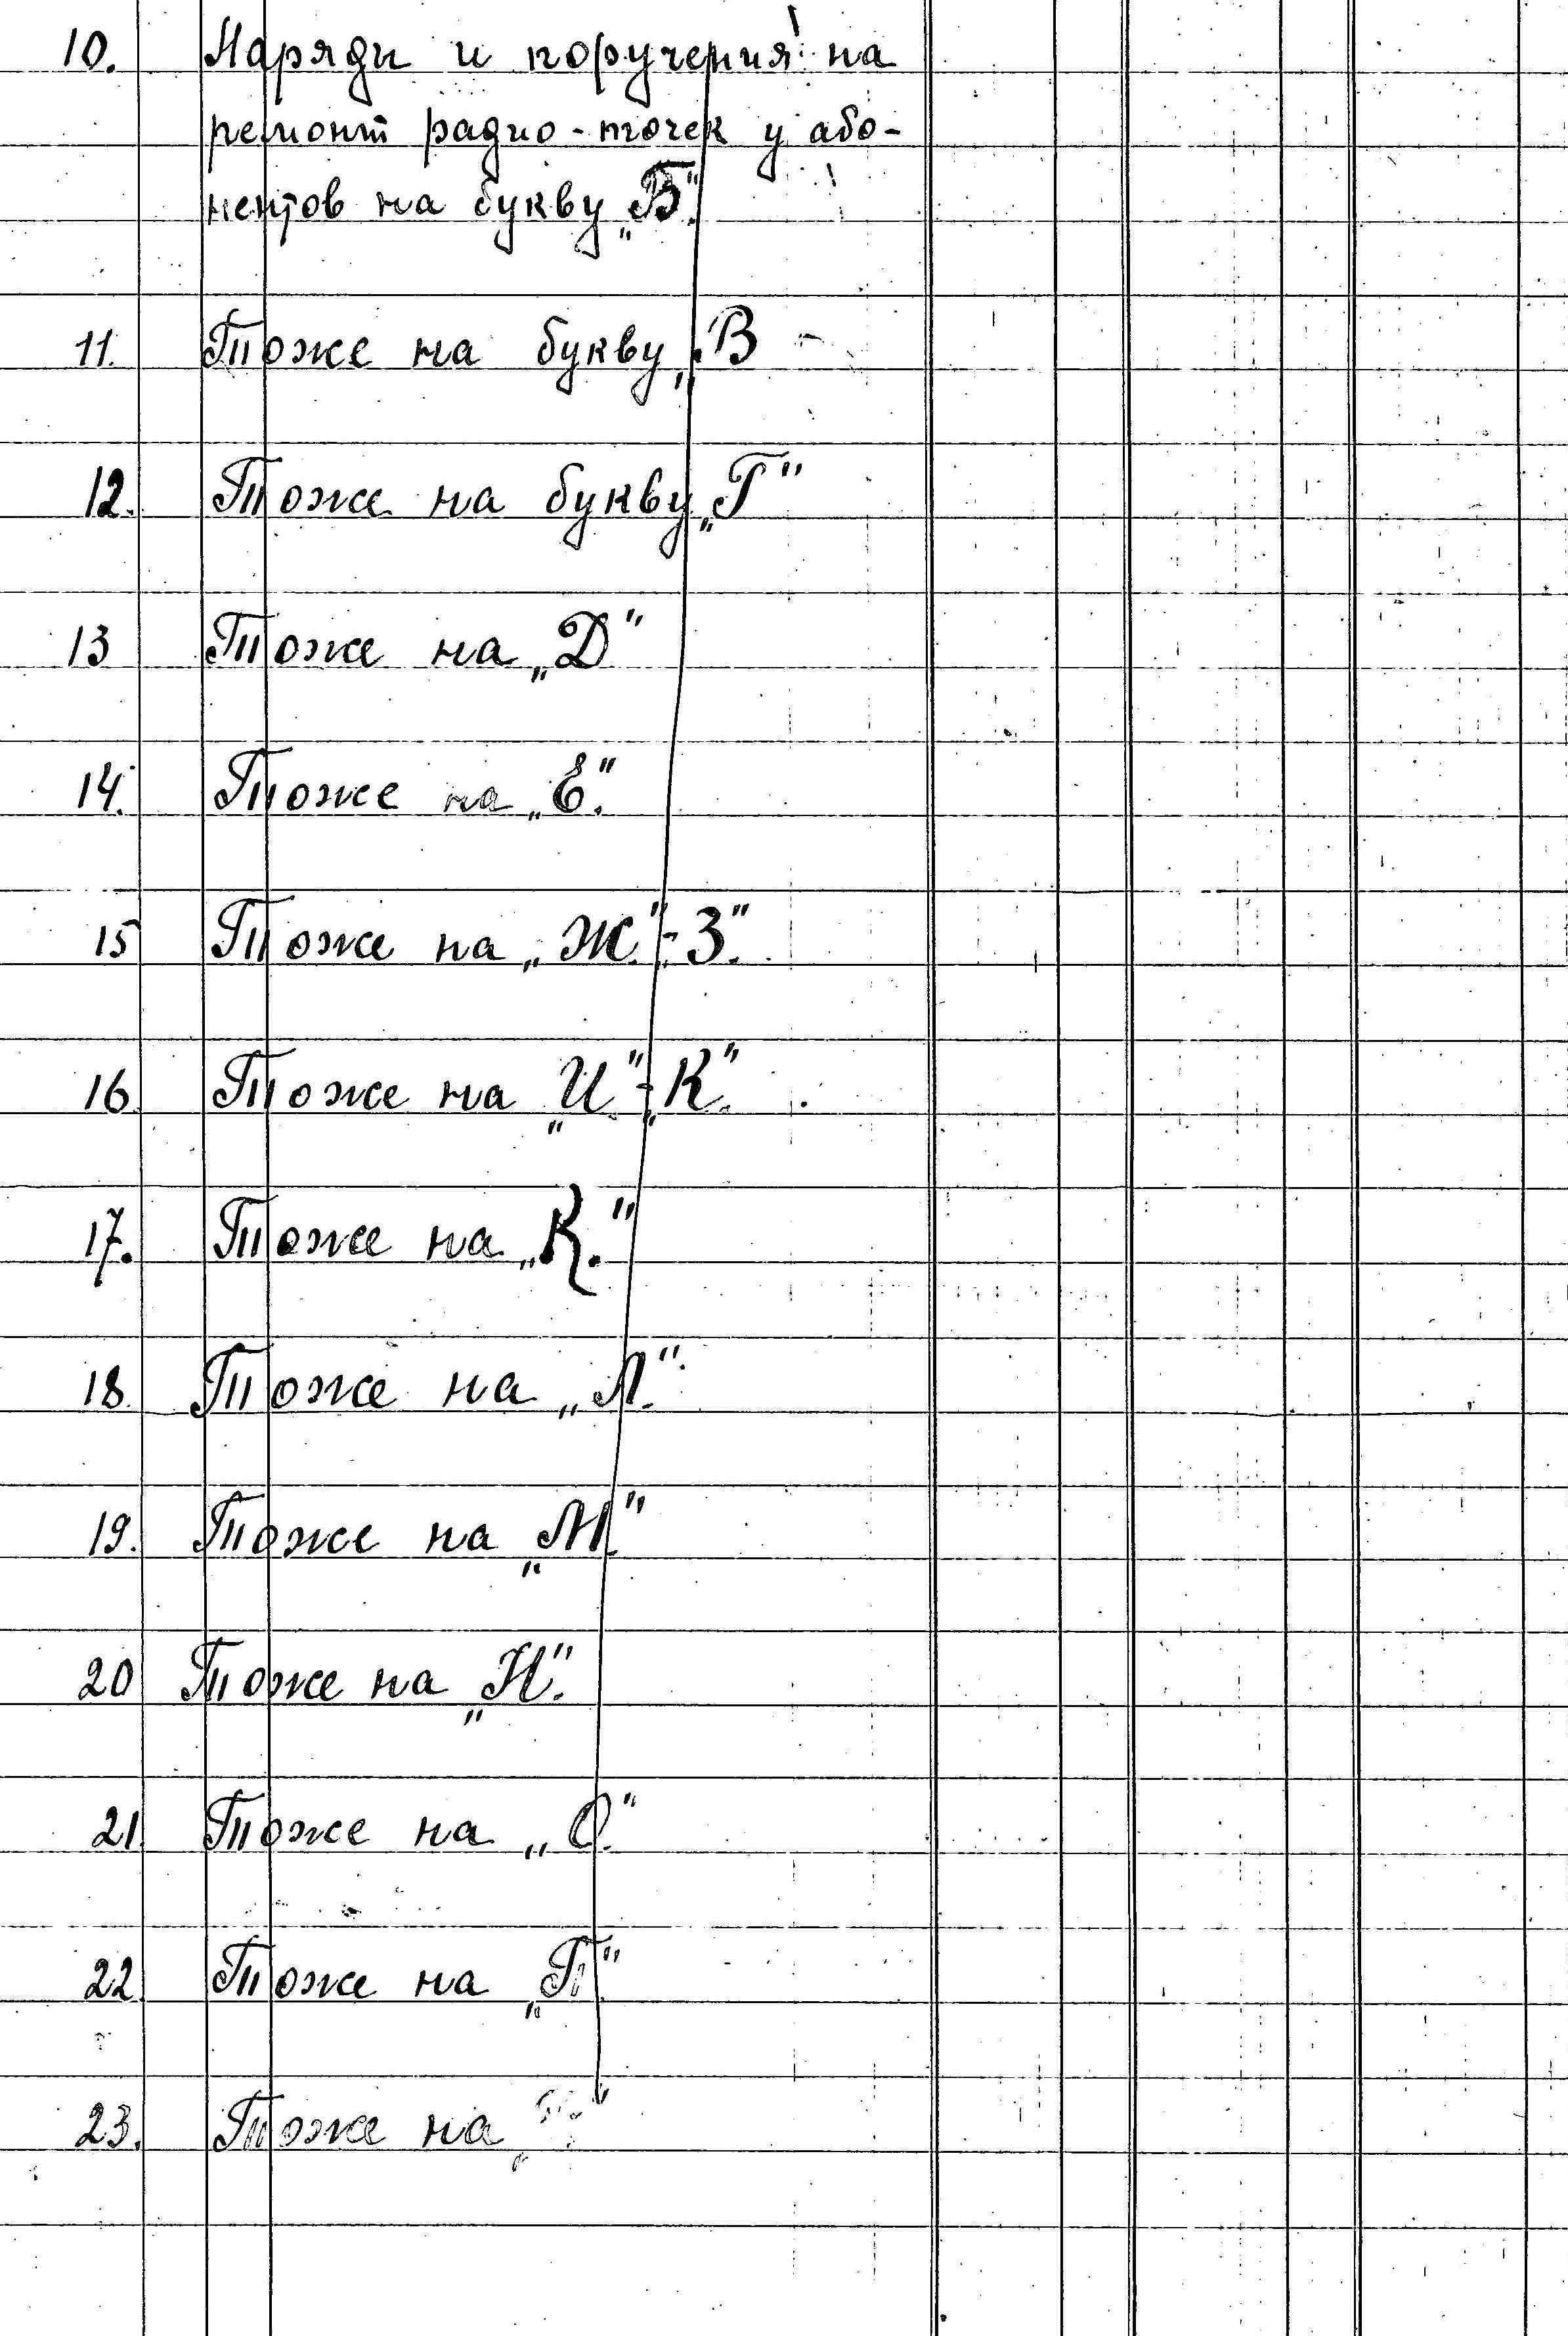 10. Наряды и поручения на
ремонт радио-точек у або-
нентов на букву „Б".
11. Тоже на букву „В
12. Тоже на букву „Г"
13 Тоже на „Д"
14. Тоже на „Е."
15 Тоже на „Ж."-З."
16. Тоже на „И."-„К."
17. Тоже на „К."
18. Тоже на „Л."
19. Тоже на „М."
20 Тоже на „Н."
21. Тоже на „О."
22. Тоже на „П"
23. Тоже на